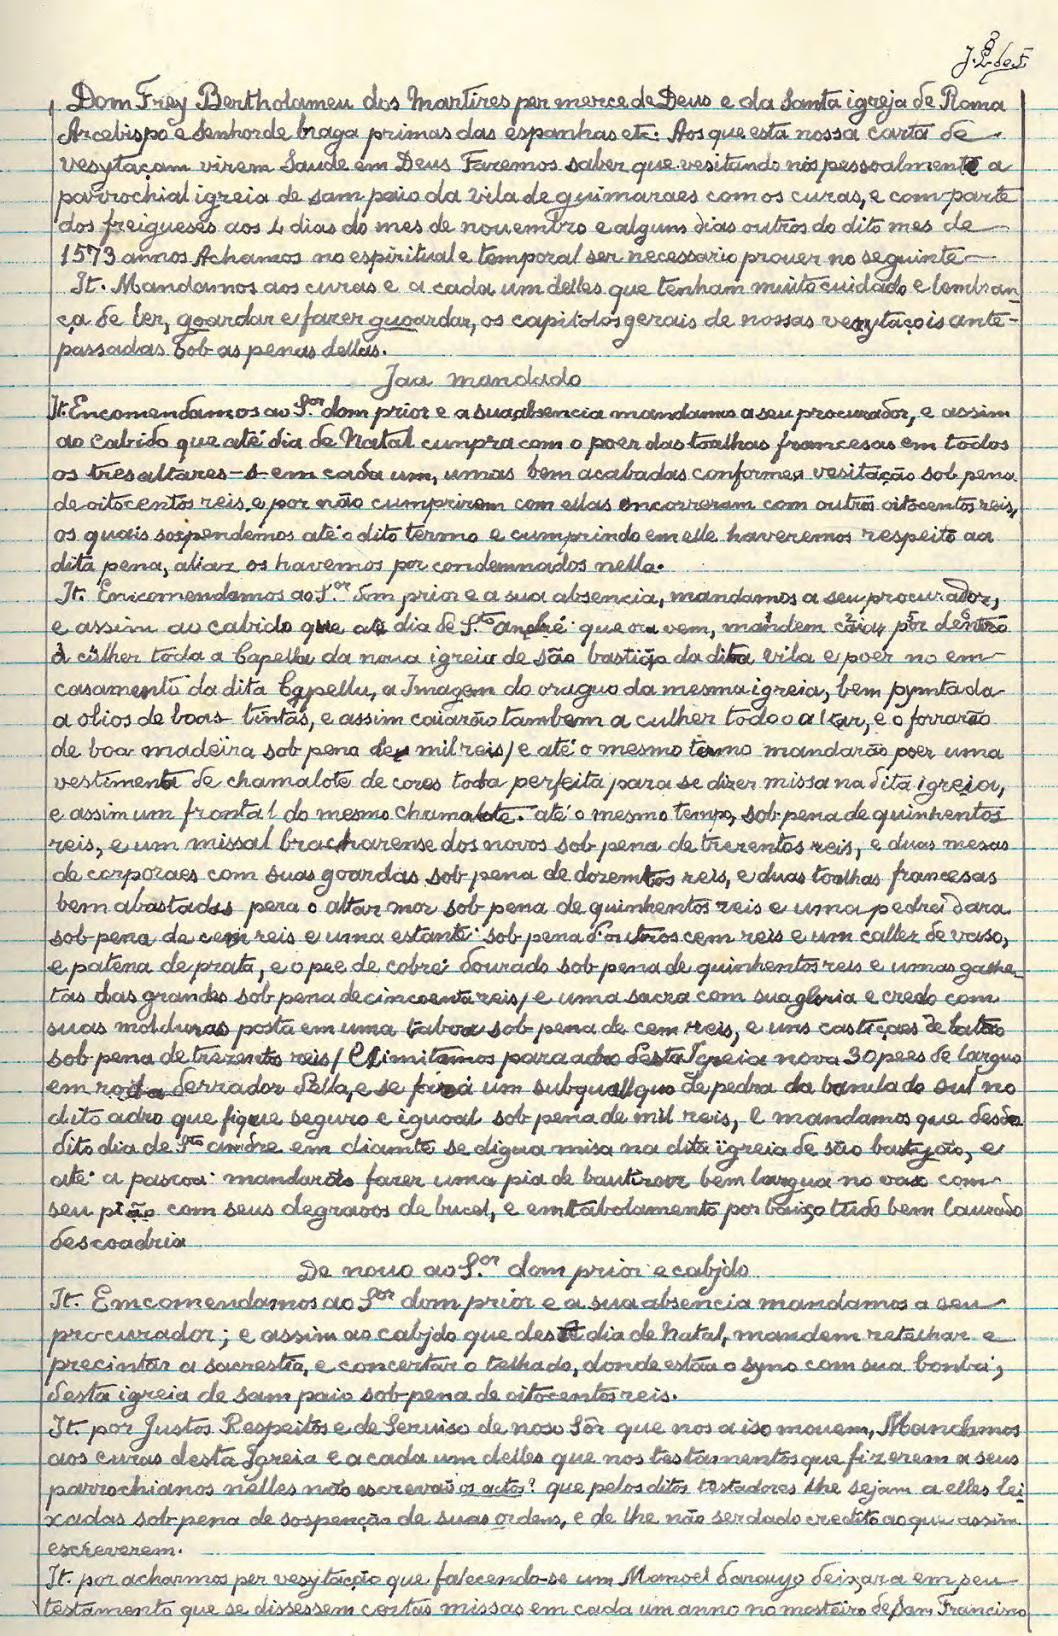 Dom Frey Bertholameu dos Martires per merce de Deus e da Santa igreja de Roma
Arcebispo e Senhor de braga primas das espanhas etc: Aos que esta nossa carta de
vesytaçam virem Saude em Deus Fazemos saber que vesitando nós pessoalmente a
parrochial igreia de sam paio da vila de guimaraes com os curas, e com parte
dos freigueses aos 4 dias do mes de novembro e alguns dias outros do dito mes de
1573 annos Achamos no espiritual e temporal ser necessario prouer no seguinte
It. Mandamos aos curas e a cada um delles que tenham muito cuidado e lembran
ça de ler, goardar e fazer guoardar, os capitolos gerais de nossas vesytaçois ante-
passadas sob as penas dellas.
Jaa mandado
It. Encomendamos ao S.or dom prior e a sua absencia mandamos a seu procurador, e assim
ao Cabido que até dia de Natal cumpra com o poer das toalhas francesas em todos
os tres altares -s- em cada um, umas bem acabadas conforme a vesitação sob pena
de oitocentos reis e por não cumprirem com ellas encorreram com outros oitocentos reis,
os quais sospendemos até o dito termo e cumprindo em elle haveremos respeito aa
dita pena, aliaz os havemos por condemnados nella.
It. Emcomendamos ao S.or dom prior e a sua absencia, mandamos a seu procurador,
e assim ao cabido que até dia de S.to André que ora vem, mandem caiar por dentro
à culher toda a Capella da noua igreia de são bastião da dita vila e poer no em
casamento da dita Capella, a Imagem do oraguo da mesma igreia, bem pymtada
a olios de boas tintas, e assim caiarão tambem a culher todo o altar, e o forrarão
de boa madeira sob pena de mil reis / e até o mesmo termo mandarão poer uma
vestimenta de chamalote de cores toda perfeita para se dizer missa na dita igreia,
e assim um frontal do mesmo chamalote. até o mesmo tempo, sob pena de quinhentos
reis, e um missal bracharense dos novos sob pena de trezentos reis, e duas mesas
de corporaes com suas goardas sob pena de dozemtos reis, e duas toalhas francesas
bem abastadas pera o altar mor sob pena de quinhentos reis e uma pedra dara
sob pena de cem reis e uma estante sob pena d'outros cem reis e um callez de vaso,
e patena de prata, e o pee de cobre dourado sob pena de quinhentos reis e umas galhe
tas das grandes sob pena de cincoenta reis / e uma sacra com sua gloria e credo com
suas molduras posta em uma taboa sob pena de cem reis, e uns castiçaes de latão
sob pena de trezentos reis / E limitamos para adro desta Igreia nova 30 pees de larguo
em roda derrador della, e se fará um de pedra da banda do sul no
dito adro que fique seguro e iguoal sob pena de mil reis, E mandamos que desdo
dito dia de S.to andre em diante se digua misa na dita igreia de são bastjão, e
até a pascoa mandarão fazer uma pia de bautizar bem largua no vaso com
seu pião com seus degraoos de bucel, e emtabolamento por baixo tudo bem laurado
descoadria
De nouo ao S.or dom prior e cabjdo
It. Emcomendamos ao S.or dom prior e a sua absencia mandamos a seu
procurador; e assim ao cabjdo que deste dia de Natal, mandem retelhar e
precintar a sacrestia, e concertar o telhado, donde estáa o syno com sua bonba,
desta igreia de sam paio sob pena de oitocentos reis.
It. por Justos Respeitos e de Seruiso de noso Sôr que nos a iso mouem, Mandamos
aos curas desta Igreia e a cada um delles que nos testamentos que fizerem a seus
parrochianos nelles não escrevaõ os actos? que pelos ditos testadores lhe sejam a elles lei
xadas sob pena de sospenção de suas ordens, e de lhe não ser dado credito ao que assim
escreverem.
It. por acharmos per vesytação que falecendo-se um Manoel daraujo deixara em seu
testamento que se dissessem certas missas em cada um anno no mosteiro de Sam Francisco